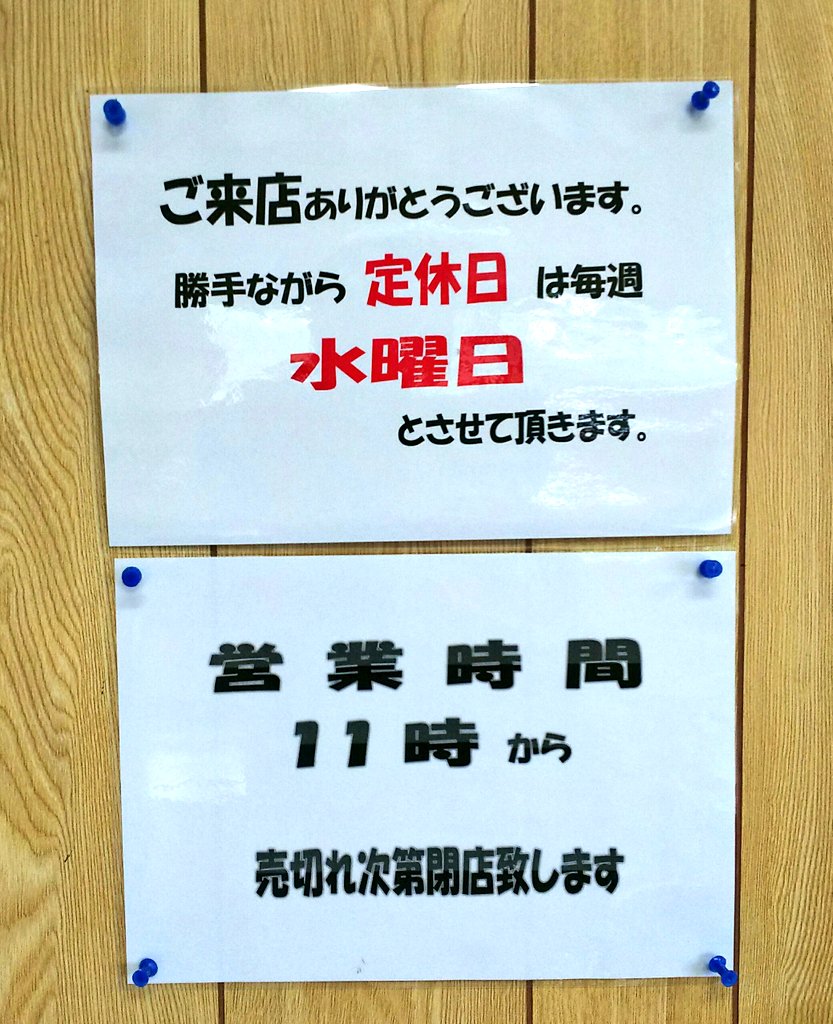 ご来店ありがとうございます。
勝手ながら 定休日 は毎週
水曜日
とさせて頂きます。
営業時間
11時から
売切れ次第閉店致します